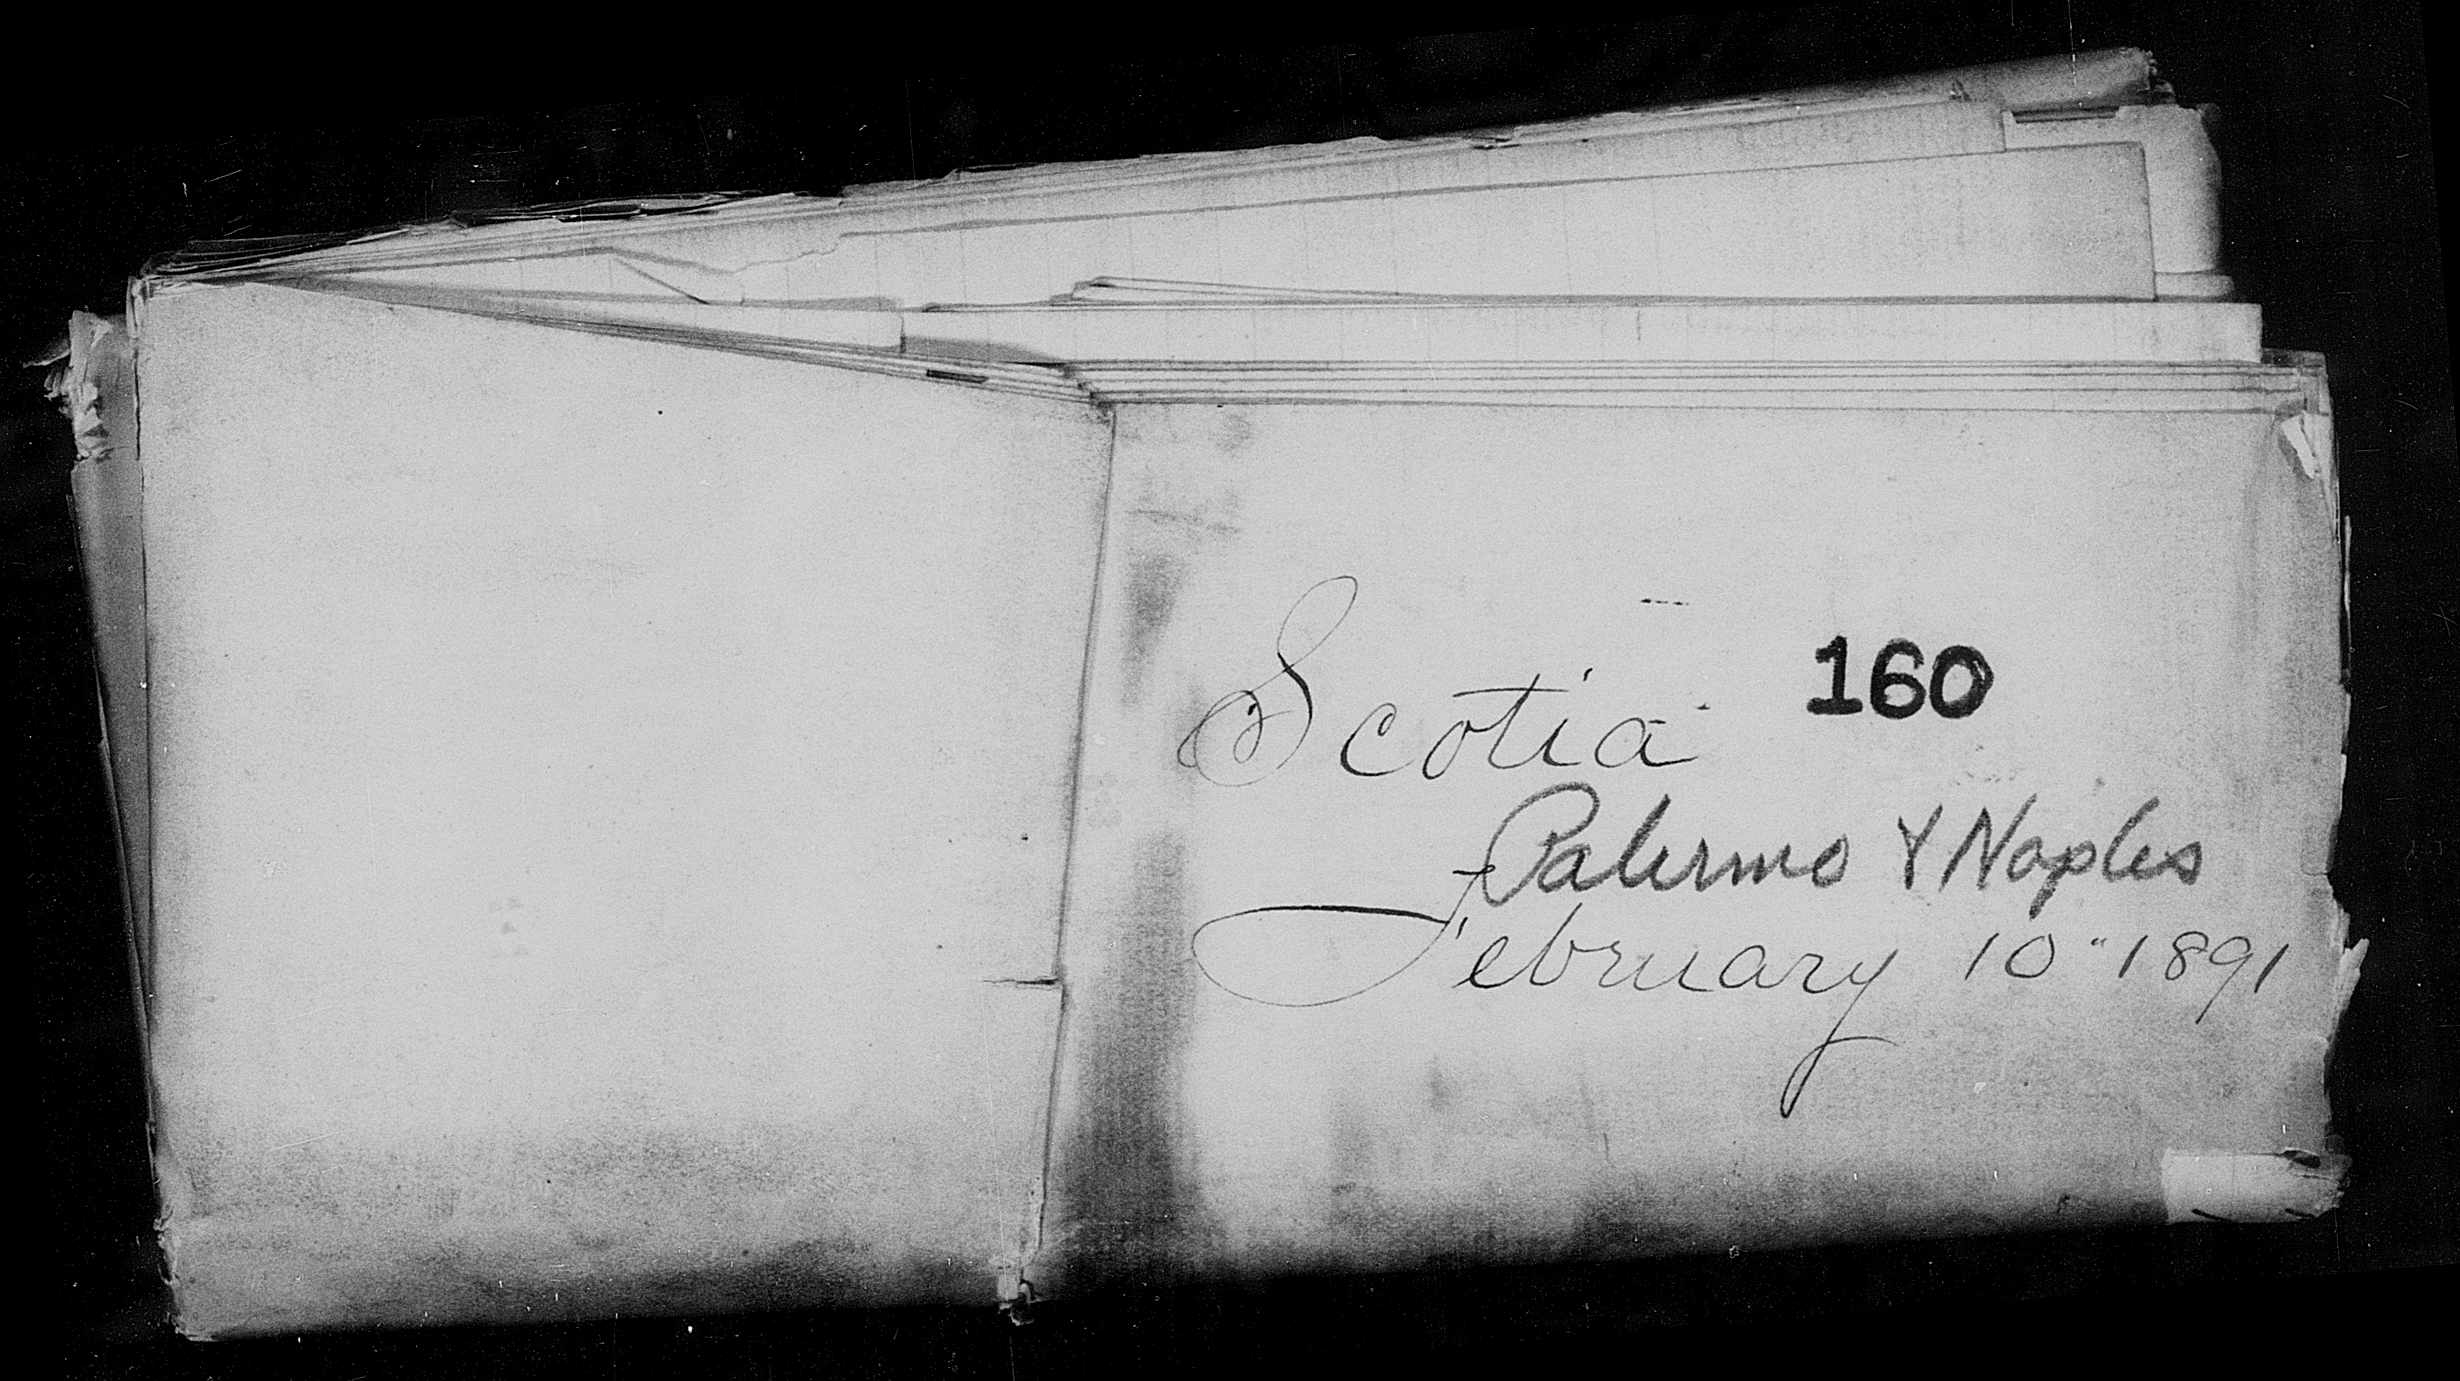 Scotia 160
Palermo & Naples
February 10" 1891